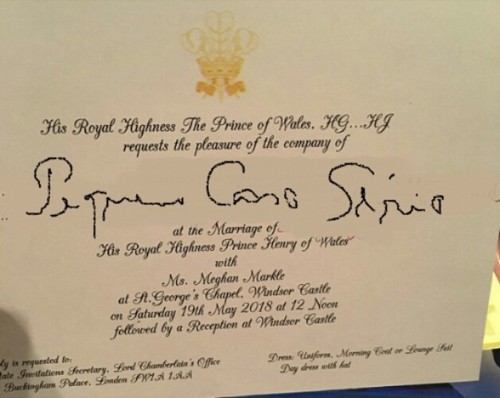 His Royal Highness The Prince of Wales, HG...HJ
requests the pleasure of the company of
Pequeno Caso Sério
at the Marriage of
His Royal Highness Prince Henry of Wales
with
Ms. Meghan Markle
at St.George's Chapel, Windsor Castle
on Saturday 19th May 2018 at 12 Noon
followed by a Reception at Windsor Castle
ly is requested to:
tate Invitations Secretary, Lord Chamberlain's Office
Buckingham Palace, London SW1A 1AA
Dress: Uniform, Morning Coat or Lounge Suit
Day dress with hat